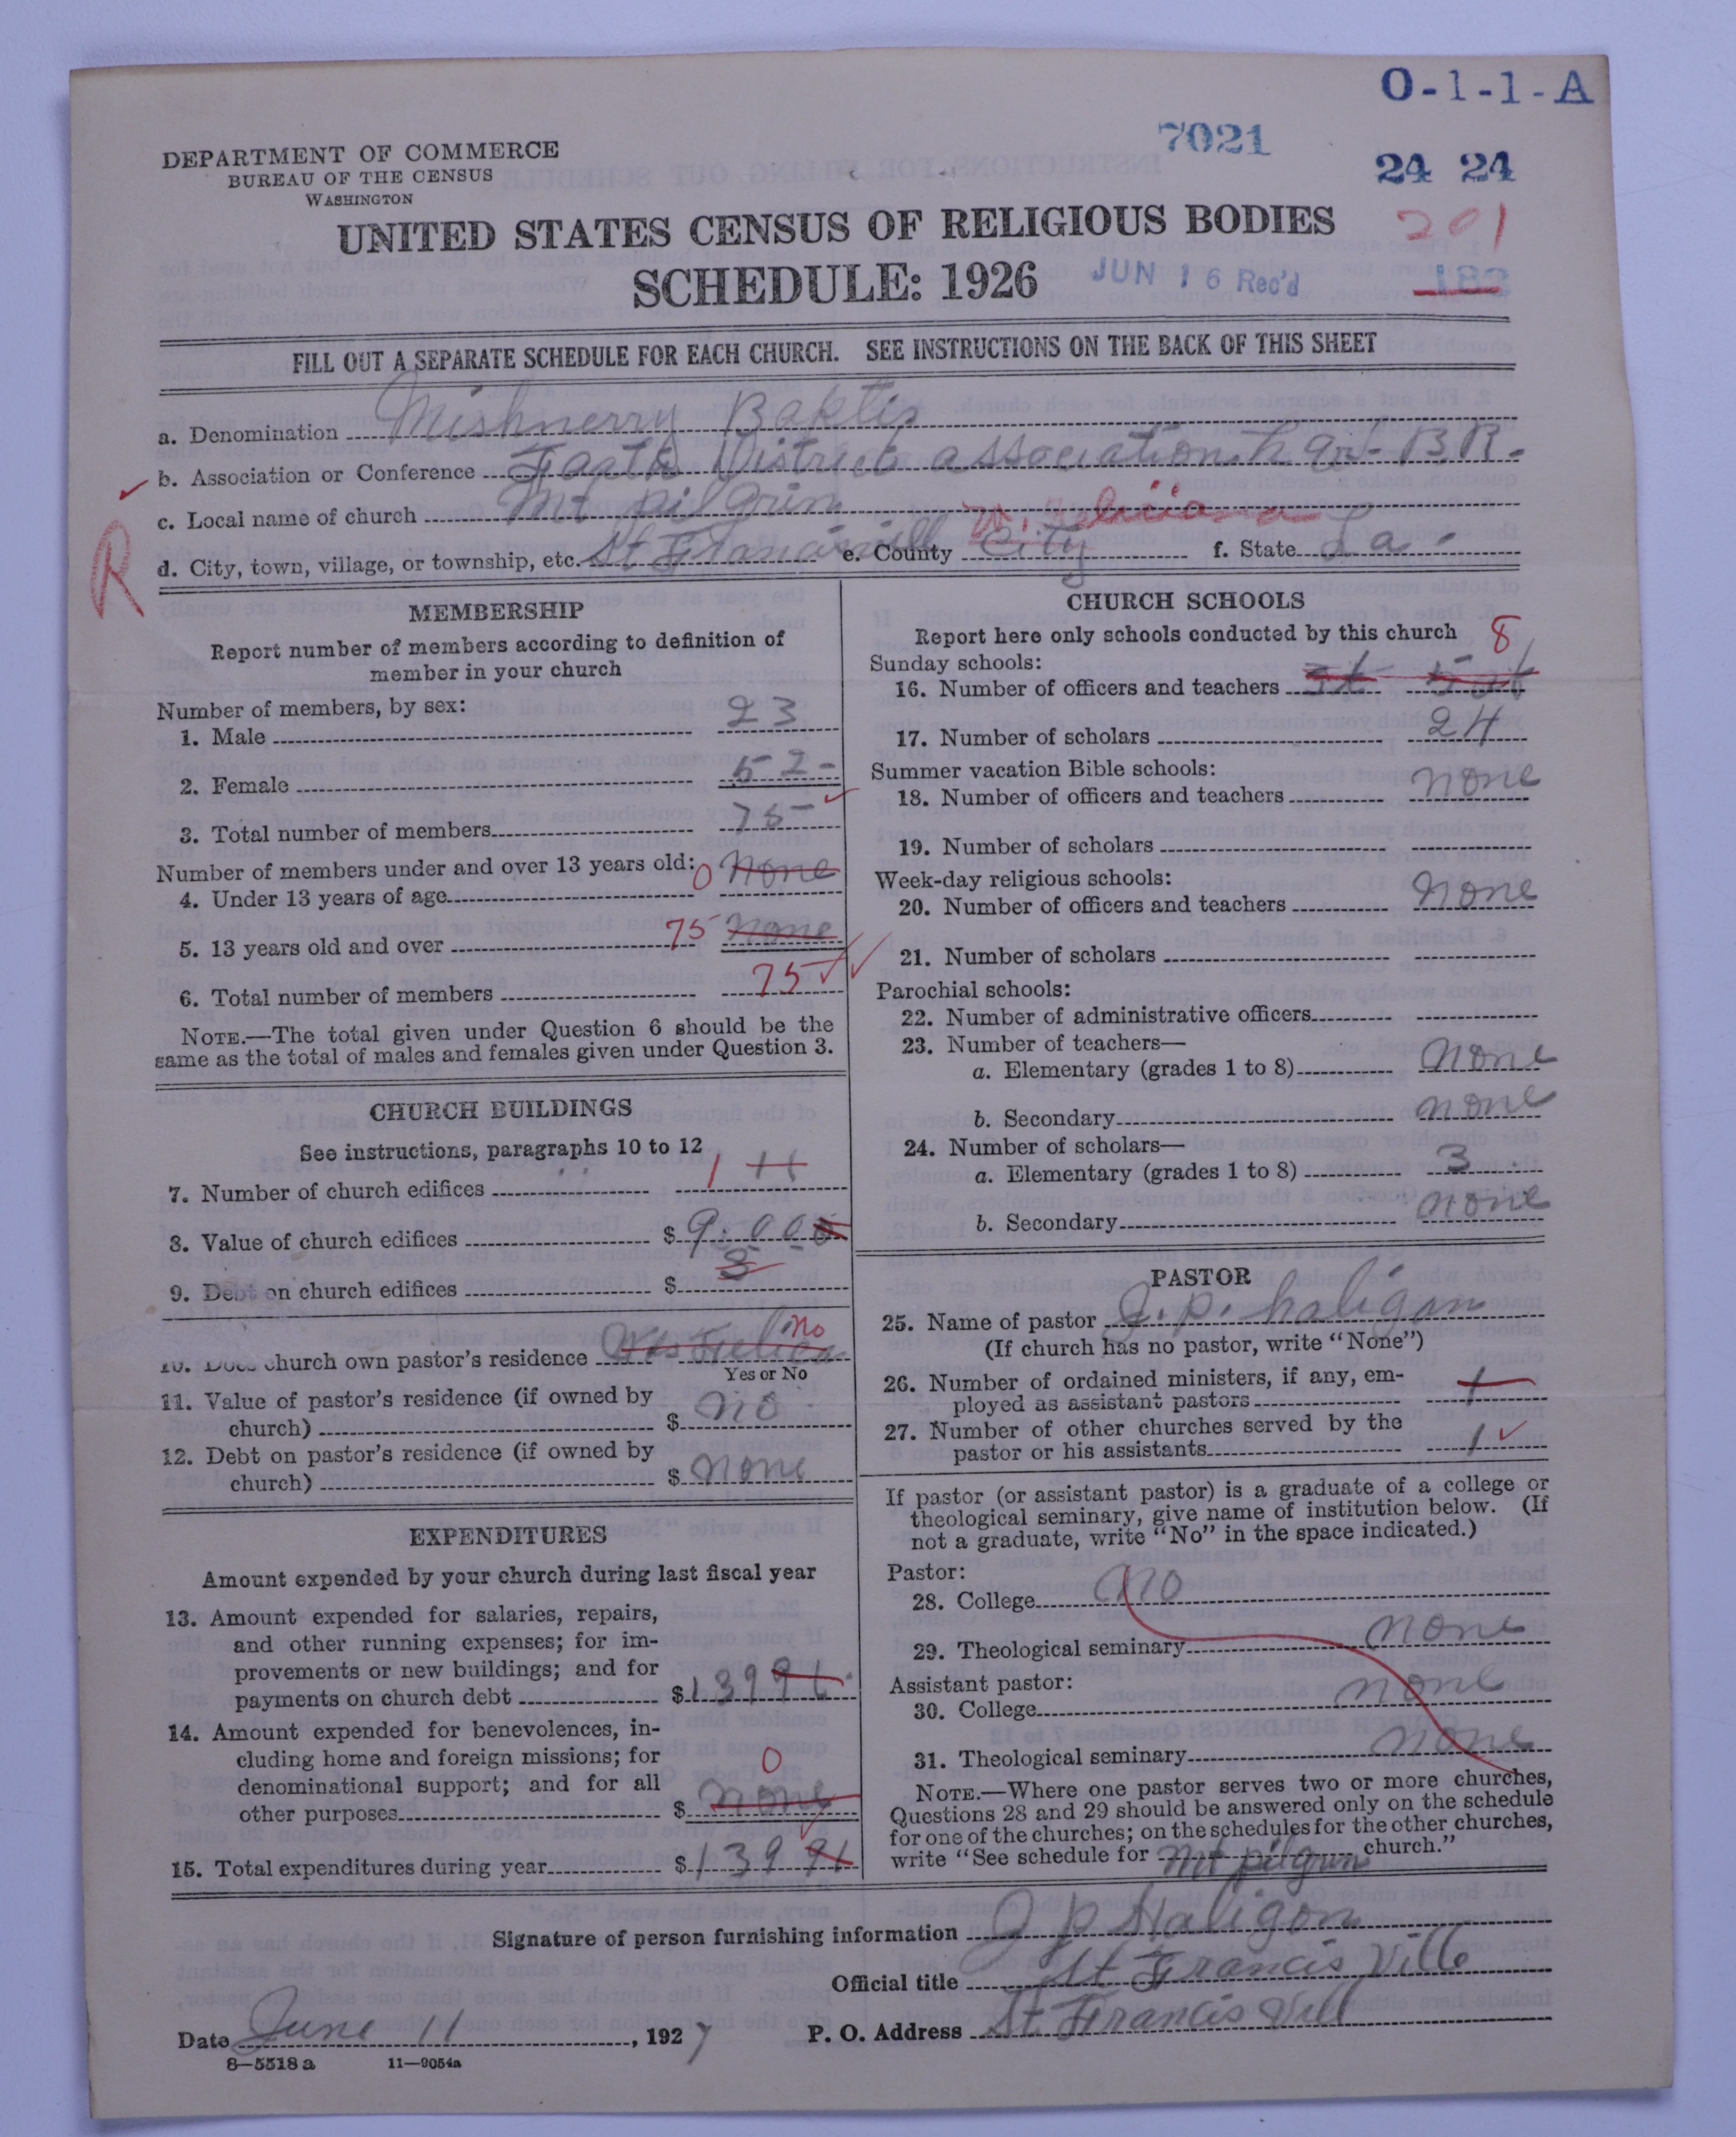 O-1-1-A
7021
DEPARTMENT OF COMMERCE
BUREAU OF THE CENSUS
WASHINGTON
24 24
UNITED STATES CENSUS OF RELIGIOUS BODIES
201
SCHEDULE: 1926
JUN 16 Rec'd
183
FILL OUT A SEPARATE SCHEDULE FOR EACH CHURCH. SEE INSTRUCTIONS ON THE BACK OF THIS SHEET
a. Denomination Mishnerry Baktis
b. Association or Conference District association
c. Local name of church Mt pilgrin
R
d. City, town, village, or township, etc. St Francisvill e. County City W. Feliciana f. State La.
MEMBERSHIP
Report number of members according to definition of
member in your church
Number of members, by sex:
1. Male 23
2. Female 52-
3. Total number of members 75
Number of members under and over 13 years old:
4. Under 13 years of age 0 none
5. 13 years old and over 75 none
6. Total number of members 75
NOTE.—The total given under Question 6 should be the
same as the total of males and females given under Question 3.
CHURCH BUILDINGS
See instructions, paragraphs 10 to 12
7. Number of church edifices 1
8. Value of church edifices $ 9.000
9. Debt on church edifices $
10. Does church own pastor's residence no
Yes or No
11. Value of pastor's residence (if owned by
church) $ no
12. Debt on pastor's residence (if owned by
church) $ none
EXPENDITURES
Amount expended by your church during last fiscal year
13. Amount expended for salaries, repairs,
and other running expenses; for im-
provements or new buildings; and for
payments on church debt $139
14. Amount expended for benevolences, in-
cluding home and foreign missions; for
denominational support; and for all
other purposes $ none 0
15. Total expenditures during year $139 91
CHURCH SCHOOLS
Report here only schools conducted by this church
Sunday schools:
16. Number of officers and teachers 8
17. Number of scholars 24
Summer vacation Bible schools:
18. Number of officers and teachers none
19. Number of scholars
Week-day religious schools:
20. Number of officers and teachers none
21. Number of scholars
Parochial schools:
22. Number of administrative officers
23. Number of teachers—
a. Elementary (grades 1 to 8) none
b. Secondary none
24. Number of scholars—
a. Elementary (grades 1 to 8) 3
b. Secondary none
PASTOR
25. Name of pastor J. P. haligan
(If church has no pastor, write "None")
26. Number of ordained ministers, if any, em-
ployed as assistant pastors 1
27. Number of other churches served by the
pastor or his assistants 1
If pastor (or assistant pastor) is a graduate of a college or
theological seminary, give name of institution below. (If
not a graduate, write "No" in the space indicated.)
Pastor:
28. College no
29. Theological seminary none
Assistant pastor:
30. College none
31. Theological seminary none
NOTE.—Where one pastor serves two or more churches,
Questions 28 and 29 should be answered only on the schedule
for one of the churches; on the schedules for the other churches,
write "See schedule for Mt pilgrin church."
Signature of person furnishing information J P Haligon
Official title St Francis Ville
Date June 11, 1927 P. O. Address St Francis Vill
8-5518 a 11-9054a